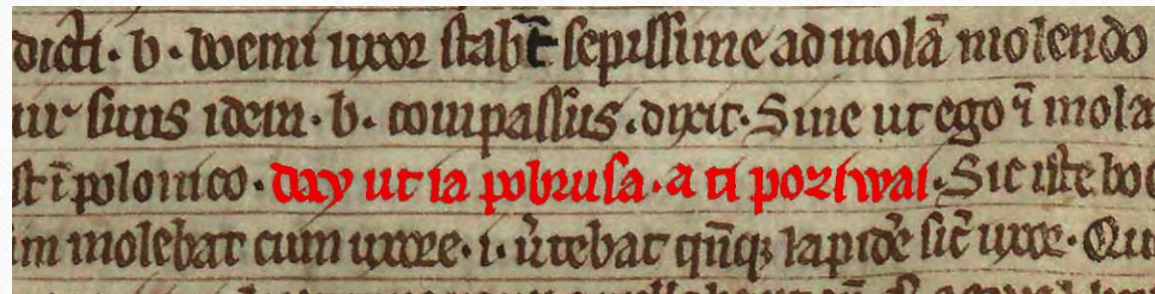 dicti · b · boemi uxor stabat sepissime ad molā molendo
uir suus idem · b · compassus · dixit · Sine ut ego ī mola
st ī polonico · day ut ia pobrusa · a ti poziwai · Sic iste bo
m molebat cum uxore · i · u̓tebat qn̄q lapidē sic̄ uxor · Qu